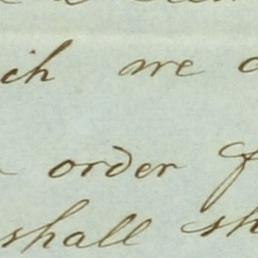 ich we
order f
shall sh